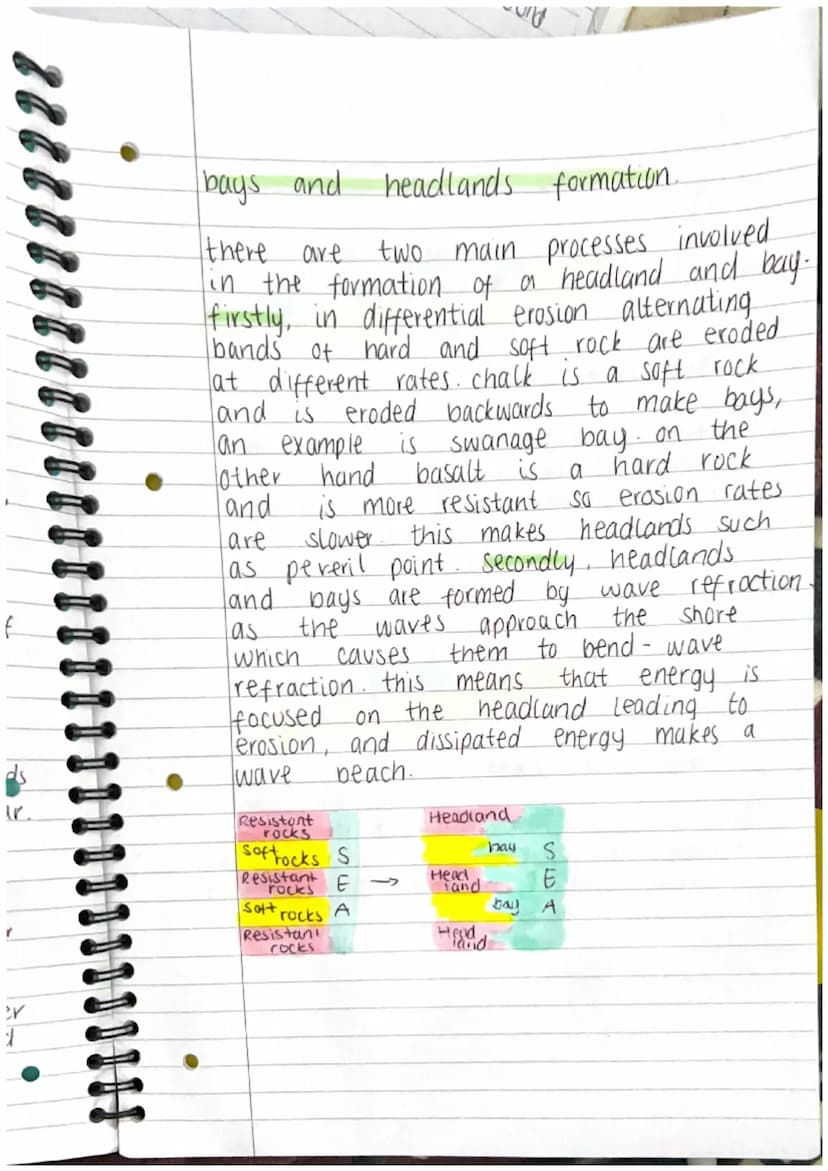 bays and headlands formation.
there are two main processes involved
in the formation of a headland and bay.
firstly, in differential erosion alternating
bands of hard and soft rock are eroded
at different rates. chalk is a soft rock
and is eroded backwards to make bays,
an example is swanage bay. on the
other hand basalt is a hard rock
and is more resistant so erosion rates
are slower. this makes headlands such
as peveril point. secondly, headlands
and bays are formed by wave refraction.
as the waves approach the shore
which causes them to bend - wave
refraction. this means that energy is
focused on the headland leading to
erosion, and dissipated energy makes a
wave beach.
Resistant
rocks
Soft rocks
Resistant
rocks
Soft rocks
Resistant
rocks
S
E
A
→
Headland
bay
Head
land
bay
Head
land
S
E
A